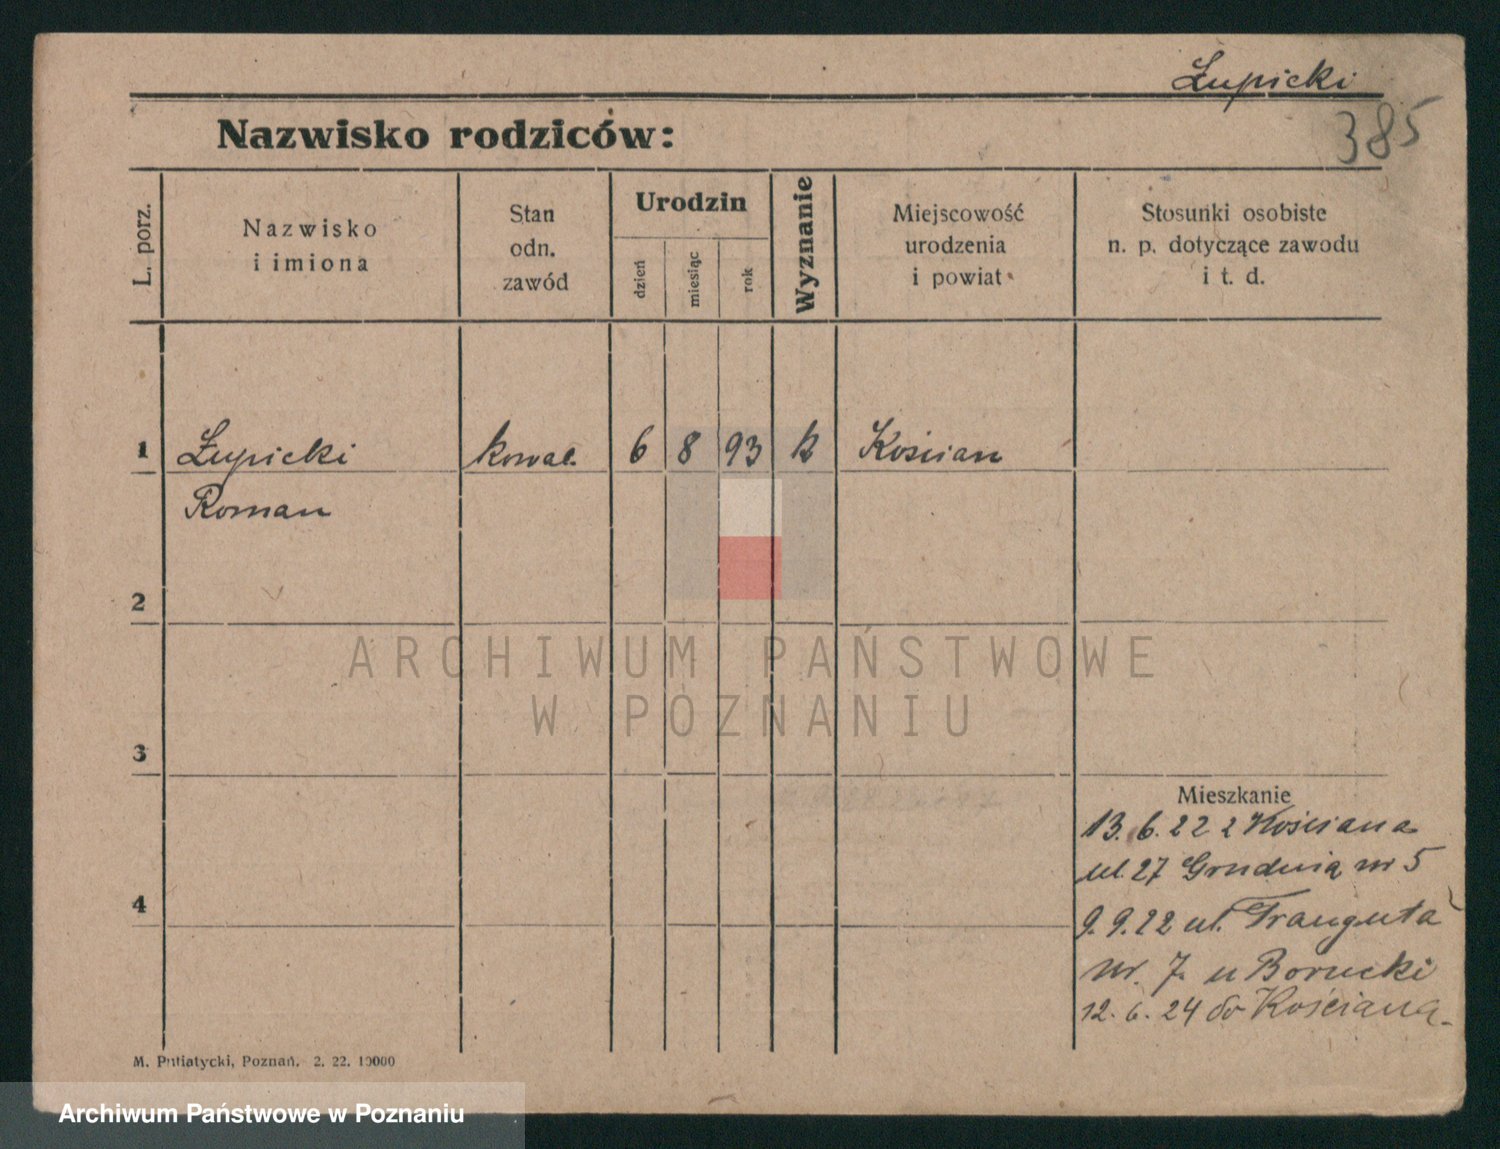 Łupicki
385
Nazwisko rodziców:
L. porz.
Nazwisko
i imiona
Stan
odn.
zawód
Urodzin
dzień
miesiąc
rok
Wyznanie
Miejscowość
urodzenia
i powiat
Stosunki osobiste
n. p. dotyczące zawodu
i t. d.
1 Łupicki kowal 6 8 93 k Kościan
Roman
2
ARCHIWUM PAŃSTWOWE
W POZNANIU
3
Mieszkanie
13.6.22 z Kościana
ul. 27 Grudnia nr 5
4
9.9.22 ul. Trauguta
nr. 7 u Borucki
12.6.24 do Kościana.
M. Putiatycki, Poznań. 2. 22. 10000
Archiwum Państwowe w Poznaniu